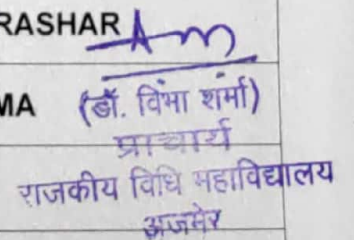 RASHAR
MA
(डॉ. विभा शर्मा)
प्राचार्य
राजकीय विधि महाविद्यालय
अजमेर